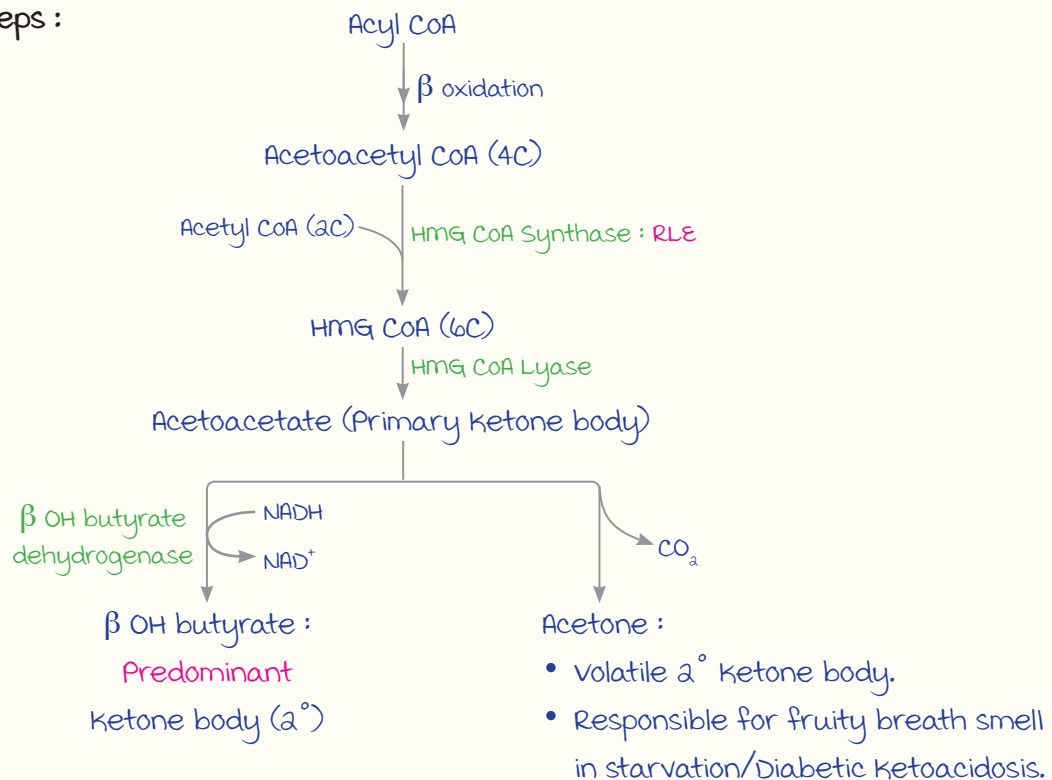 eps :
Acyl CoA
β oxidation
Acetoacetyl CoA (4C)
Acetyl CoA (2C)
HMG CoA Synthase : RLE
HMG CoA (6C)
HMG CoA Lyase
Acetoacetate (Primary ketone body)
β OH butyrate
dehydrogenase
NADH
NAD⁺
CO₂
β OH butyrate :
Predominant
ketone body (2°)
Acetone :
• Volatile 2° ketone body.
• Responsible for fruity breath smell
in starvation/Diabetic ketoacidosis.